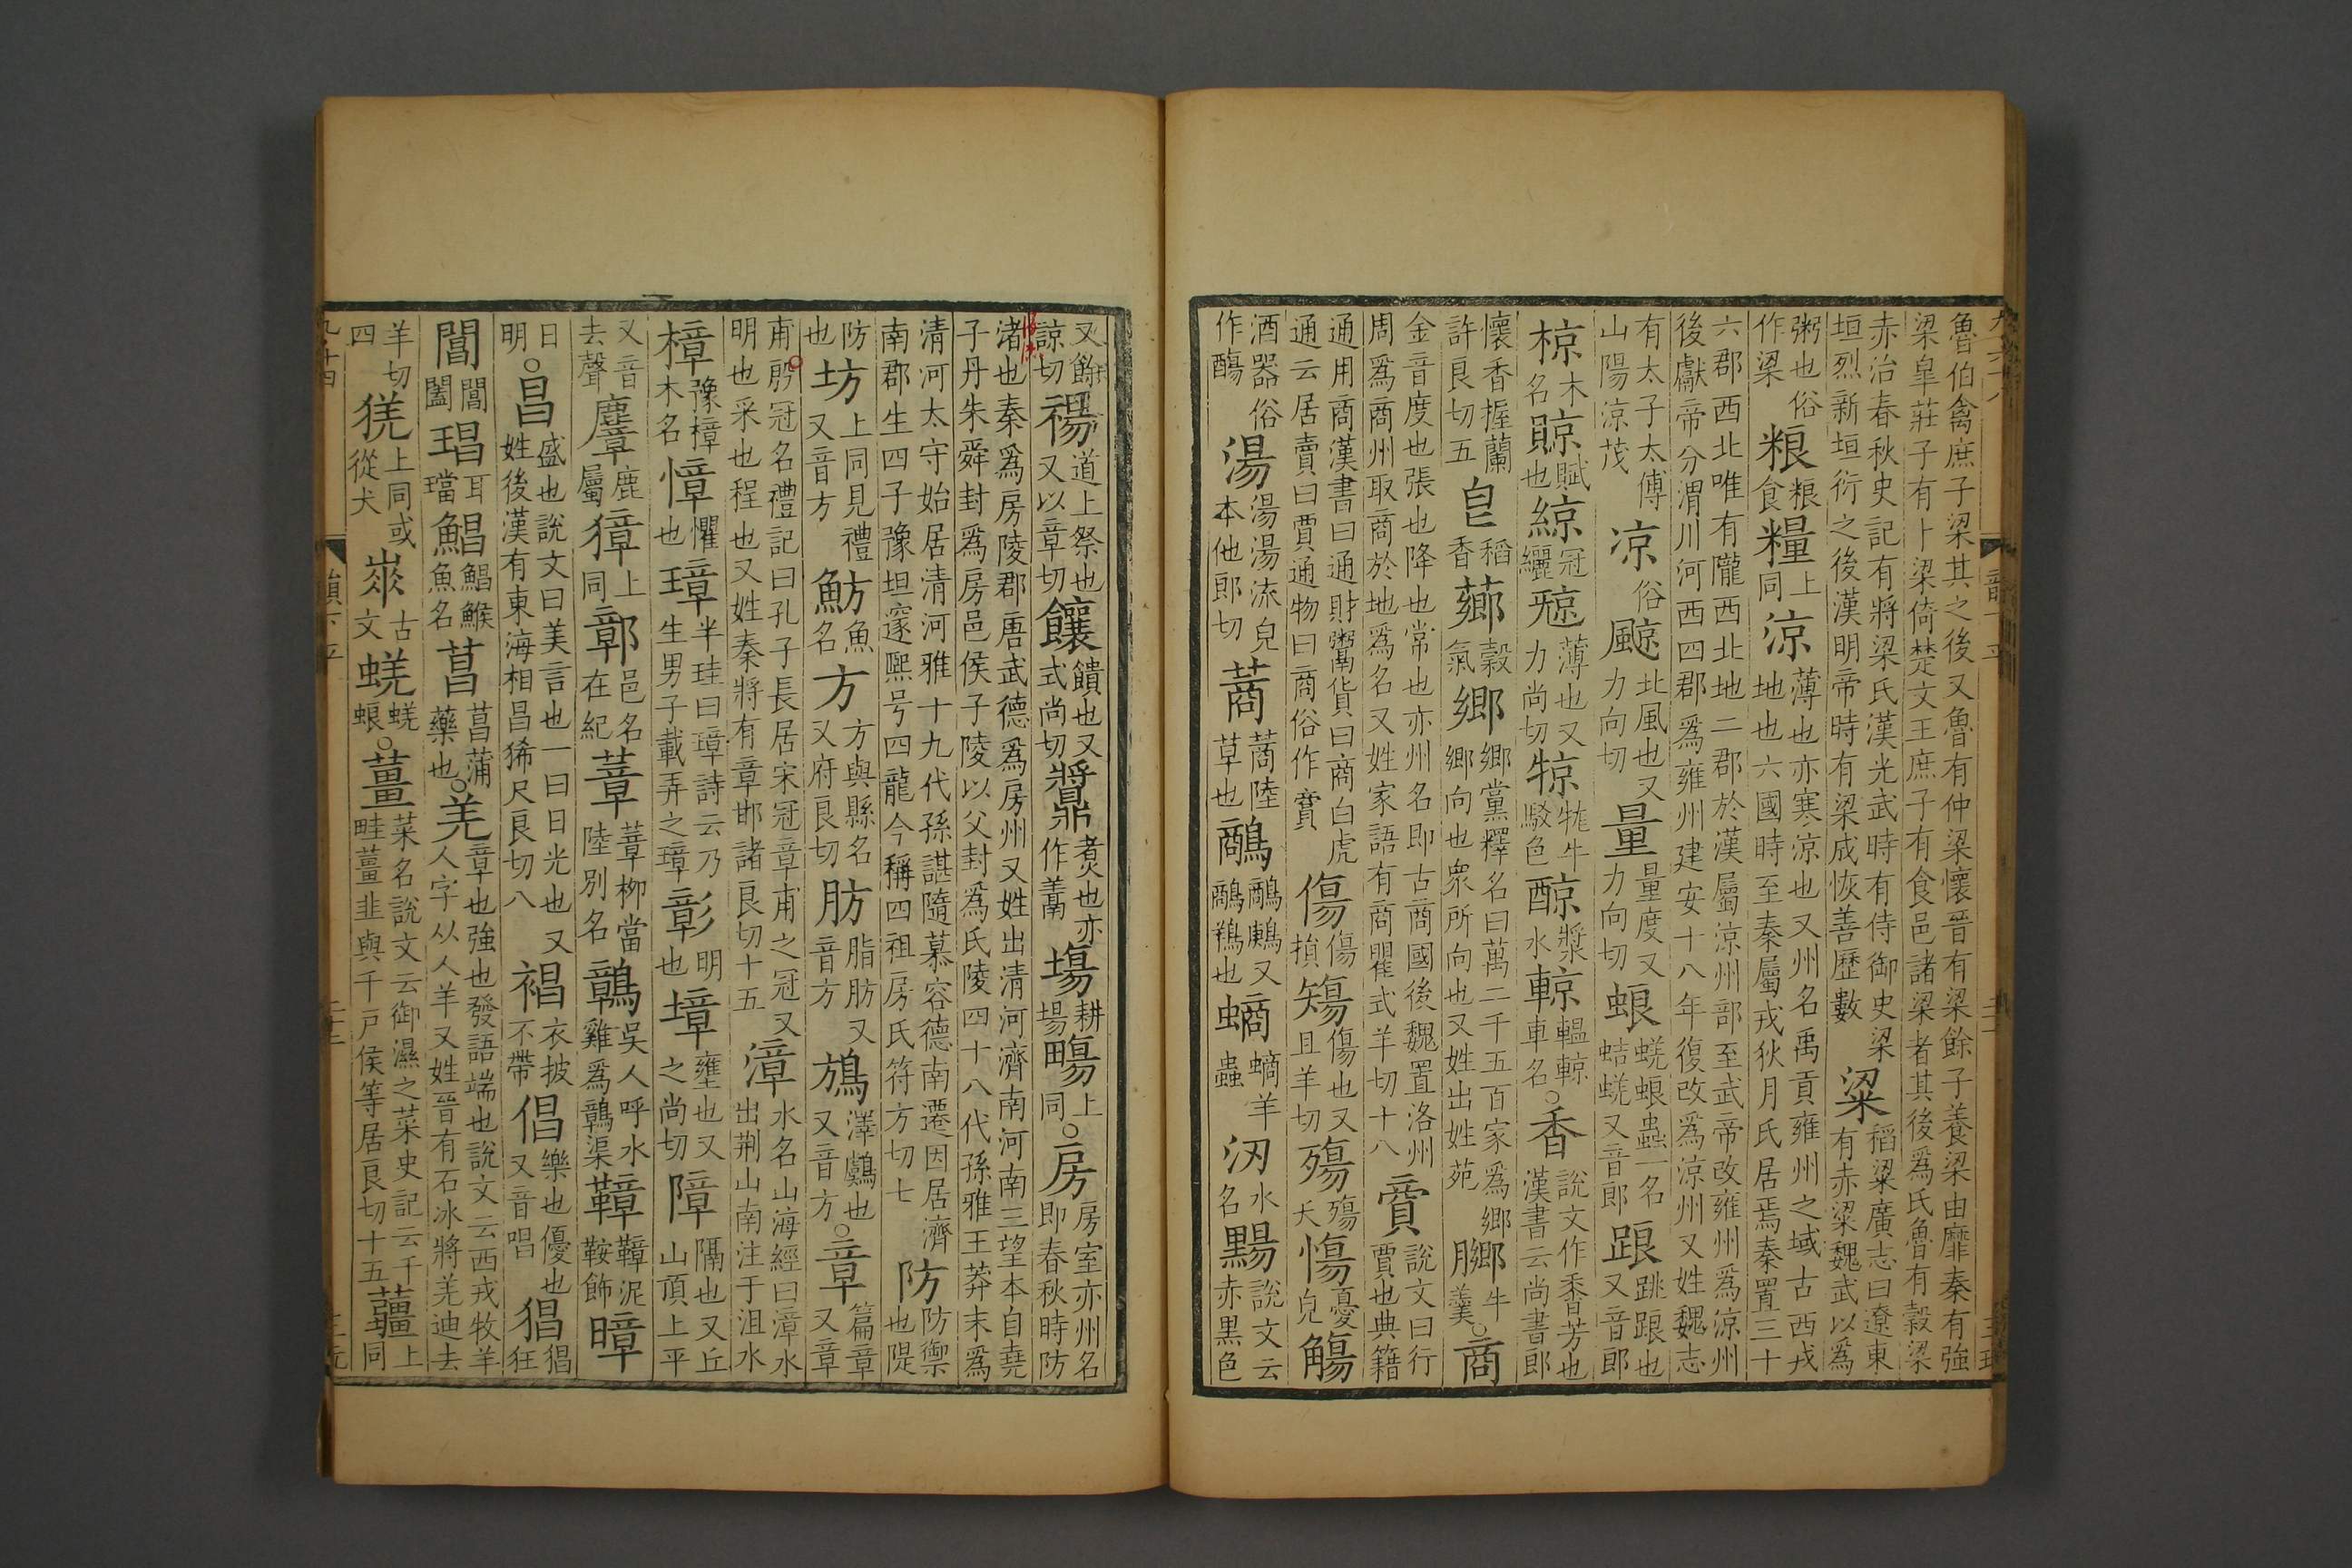 魯伯禽庶子梁其之後又魯有仲梁懷晋有梁餘子養梁由靡秦有強
梁皐莊子有卜梁倚楚文王庶子有食邑諸梁者其後爲氏魯有穀梁
赤治春秋史記有將梁氏漢光武時有侍御史梁
垣烈新垣衍之後漢明帝時有梁成恢善歷數 粱 稻粱廣志曰遼東有赤粱魏武以爲
粥也俗作粱 粮 粮食 糧 上同 涼 薄也亦寒涼也又州名禹貢雍州之域古西戎
地也六國時至秦屬戎狄月氏居焉秦置三十
六郡西北唯有隴西北地二郡於漢屬涼州部至武帝改雍州爲涼州
後獻帝分渭川河西四郡爲雍州建安十八年復改爲涼州又姓魏志
有太子太傅山陽涼茂 凉 俗 北風也又力向切 量 量度也又力向切 蜋 蜣蜋蟲一名蛣蜣又音郎 踉 跳踉也又音郎
椋 木名 賦也 綡 冠纚 薄也又力尚切 㹁 牻牛駁色 䣼 漿水 輬 轀輬車名○香 說文作𪏽芳也漢書云尚書郎
懷香握蘭許良切五 皀 稻香 薌 穀氣 鄉 鄉黨釋名曰萬二千五百家爲鄉鄉向也眾所向也又姓出姓苑 膷 牛羹○商
金音度也張也降也常也亦州名即古商國後魏置洛州
周爲商州取商於地爲名又姓家語有商瞿式羊切十八 𧶜 說文曰行賈也典籍
通用商漢書曰通財鬻貨曰商白虎
通云居賣曰賈通物曰商俗作 傷 傷損 𥏫 傷也又且羊切 殤 殤夭 慯 憂皃 觴
酒器俗作 湯 湯湯流皃本他郎切 蔏 蔏陸草也 又 也 螪 螪羊蟲 水名 說文云赤黑色
又餘諒切 禓 道上祭也又以章切 饟 饋也又式尚切 䵼 煮也亦作鬺 塲 耕塲 畼 上同○房 房室亦州名即春秋時防
渚也秦爲房陵郡唐武德爲房州又姓出清河濟南河南三望本自堯
子丹朱舜封爲房邑侯子陵以父封爲氏陵四十八代孫雅王莽末爲
清河太守始居清河雅十九代孫諶隨慕容德南遷因居濟
南郡生四子豫坦邃熙号四龍今稱四祖房氏符方切七 防 防禦也隄
防也 坊 上同見禮又音方 魴 魚名 方 方與縣名又府良切 肪 脂肪又音方 鴋 澤鸆也又音方○章 篇章又章
甫冠名禮記曰孔子長居宋冠章甫之冠又
明也采也程也又姓秦將有章邯諸良切十五 漳 水名山海經曰漳水出荆山南注于沮水
樟 豫樟木名 慞 懼也 璋 半珪曰璋詩云乃生男子載弄之璋 彰 明也 墇 壅也又之尚切 障 隔也又丘山頂上平
又音去聲 麞 鹿屬 獐 上同 鄣 邑名在紀 葦 葦柳當陸別名 鷞 吳人呼水雞爲鷞渠 鞾 鞾泥鞍飾 暲
日明○昌 盛也說文曰美言也一曰日光也又姓後漢有東海相昌狶尺良切八 裮 衣披不帶 倡 樂也優也又音唱 猖 猖狂
閶 閶闔 琩 耳璫 鯧 鯧鯸魚名 菖 菖蒲藥也○羌 章也強也發語端也說文云西戎牧羊人字从人羊又姓晉有石冰將羌迪去
羊切四 猐 上同或從犬 古文 蜣 蜣蜋○薑 菜名說文云御濕之菜史記云千畦薑韭與千戸侯等居良切十五 䕬 上同